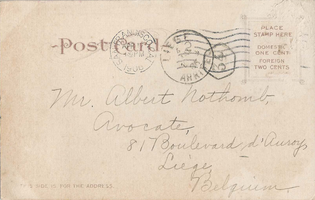 Postcard.
PLACE
STAMP HERE
DOMESTIC
ONE CENT
FOREIGN
TWO CENTS
LIEGE
ARRIVEE
Mr. Albert Nothomb,
Avocate,
81 Boulevard, d'Avroy
Liége,
Belgium
SIDE IS FOR THE ADDRESS.